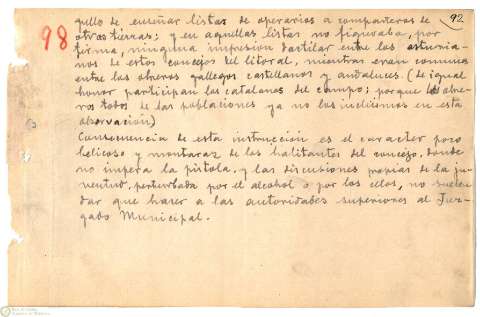 92
98
gullo de enseñar listas de operarios a compañeros de
otras tierras; y en aquellas listas no figuraba, por
firma, ninguna impresion dactilar entre los asturia-
nos de estos concejos del litoral, mientras eran comunes
entre los obreros gallegos castellanos y andaluces. (De igual
honor participan los catalanes del campo; porque los obre-
ros todos de las poblaciones ya no los incluimos en esta
observación)
Consecuencia de esta instrucción es el caracter poco
belicoso y montaraz de los habitantes del concejo, donde
no impera la pistola. y las discusiones propias de la ju-
ventud, perturbada por el alcohol o por los celos, no suelen
dar que hacer a las autoridades superiores al Juz-
gado Municipal.